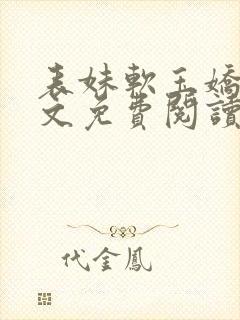 表妹軟玉嬌
文免費閱讀
代金鳳